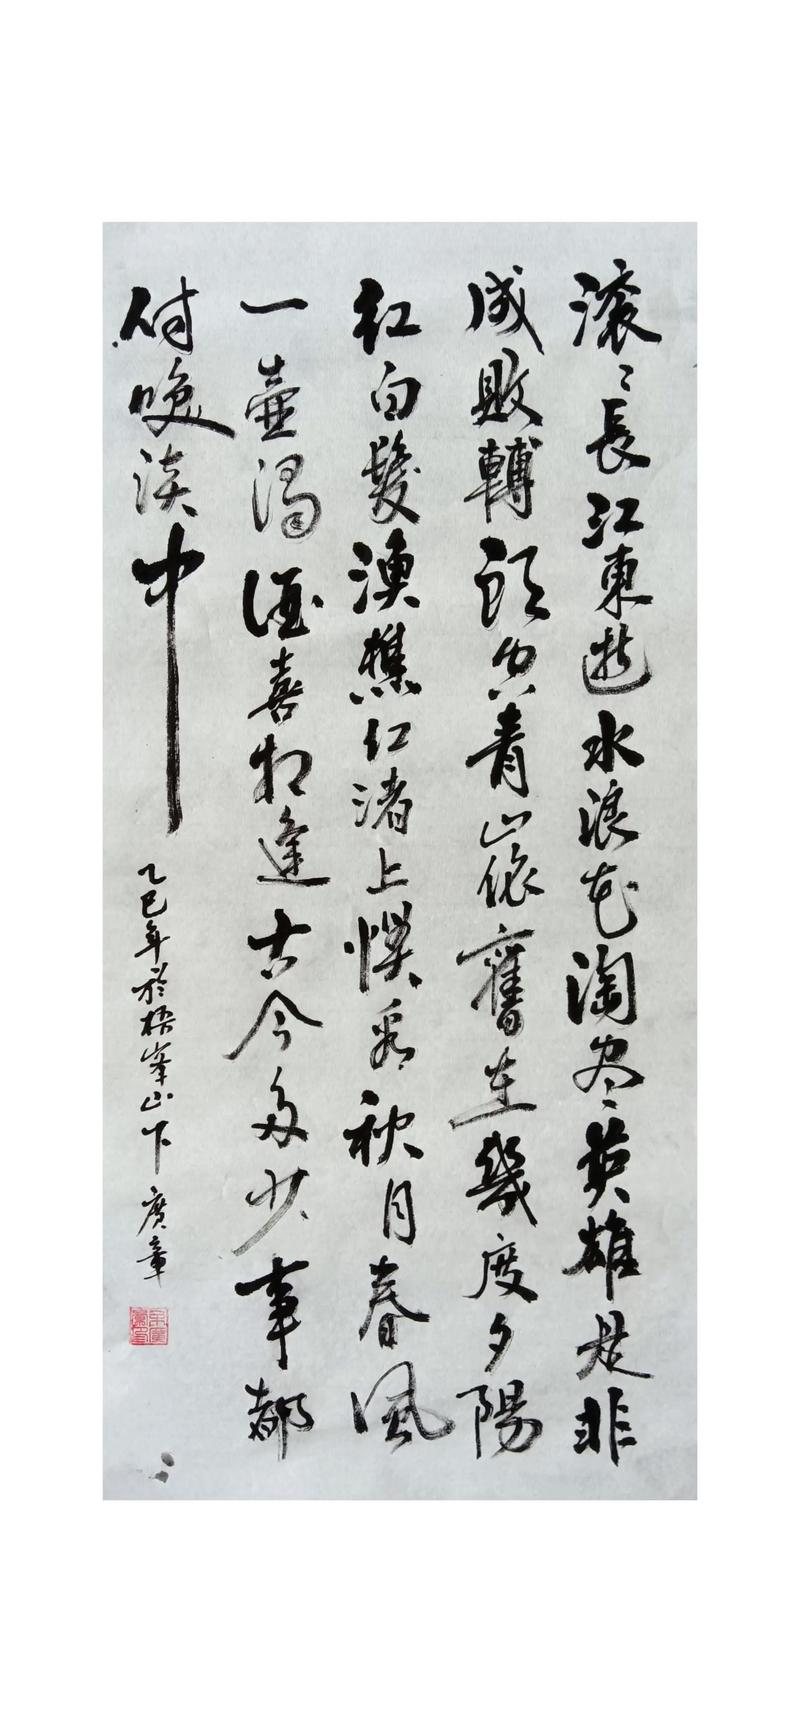 滾〻長江東逝水浪花淘尽英雄是非
成敗轉頭空青山依舊在幾度夕陽
紅白髮漁樵江渚上惯看秋月春風
一壺濁酒喜相逢古今多少事都
付笑淡中
乙巳年於梧峯山下 廣章